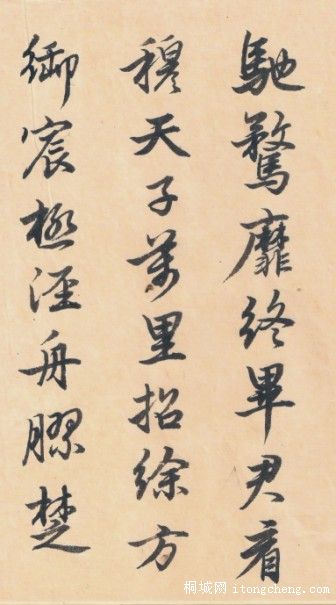 馳騖靡終畢君看
穆天子萬里招徐方
御宸極涇舟膠楚
桐城网 itongcheng.com